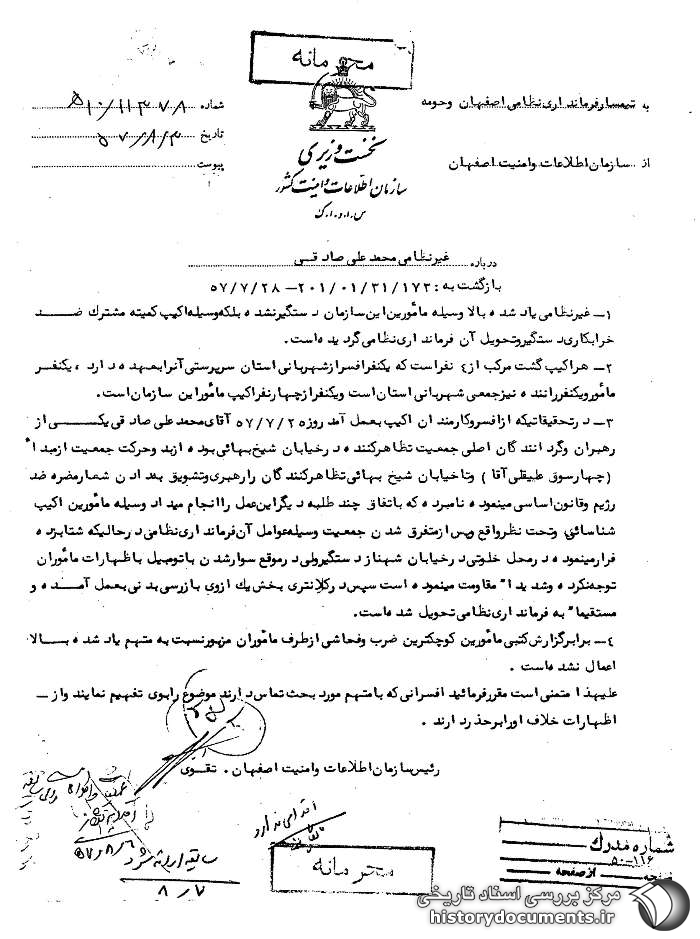 محرمانه
به تیمسار فرمانداری نظامی اصفهان وحومه
شماره ۵۱۰/۱۱۳۷۸
تاریخ ۵۷/۸/۳
از سازمان اطلاعات وامنیت اصفهان
پیوست
نخست وزیری
سازمان اطلاعات و امنیت کشور
س.ا.و.ا.ک
درباره غیرنظامی محمد علی صادقی
بازگشت به : ۲۰۱/۰۱/۳۱/۱۷۳ – ۵۷/۷/۲۸
۱– غیرنظامی یاد شده بالا وسیله مأمورین این سازمان دستگیر نشده بلکه وسیله اکیپ کمیته مشترک ضد
خرابکاری دستگیر وتحویل آن فرمانداری نظامی گردیده است.
۲– هر اکیپ گشت مرکب از ٤ نفراست که یکنفرافسر از شهربانی استان سرپرستی آنرا بعهده دارد ، یکنفر
مأمور ویکنفر راننده نیزجمعی شهربانی استان است ویکنفر از چهارنفر اکیپ مأمور این سازمان است.
۳– در تحقیقاتیکه از افسر وکارمندان اکیپ بعمل آمد روز ۵۷/۷/۲۵ آقای محمد علی صادقی یکی از
رهبران وگردانندگان اصلی جمعیت تظاهرکننده در خیابان شیخ بهائی بوده از بدو حرکت جمعیت از مبدأ
(چهارسوق علیقلی آقا ) وتا خیابان شیخ بهائی تظاهرکنندگان را رهبری وتشویق بدادن شعار مضره ضد
رژیم وقانون اساسی مینموده نامبرده که باتفاق چند طلبه دیگر این عمل را انجام میداد وسیله مأمورین اکیپ
شناسائی وتحت نظر واقع وپس از متفرق شدن جمعیت وسیله عوامل آن فرمانداری نظامی در حالیکه شتابزده
فرار مینموده در محل خلوتی در خیابان شهناز دستگیر ولی در موقع سوار شدن با توصیل باظهارات مأموران
توجه نکرده وشدیدا" مقاومت مینموده است سپس در کلانتری بخش یک از وی بازرسی بدنی بعمل آمده و
مستقیما" به فرمانداری نظامی تحویل شده است.
٤– برابر گزارش کتبی مأمورین کوچکترین ضرب وفحاشی ازطرف مأموران مزبور نسبت به متهم یاد شده بالا
اعمال نشده است .
علیهذا متمنی است مقررفرمائید افسرانی که با متهم مورد بحث تماس دارند موضوع را بوی تفهیم نمایند واز–
اظهارات خلاف او را برحذر دارند .
رئیس سازمان اطلاعات وامنیت اصفهان . تقوی
اقدامی ندارد
۵۷/۸/۶
سابقه ارائه شود
۸/۷
محرمانه
شماره مدرک
۵۰-۱۱۶
صفحه
از صفحه
مرکز بررسی اسناد تاریخی
historydocuments.ir